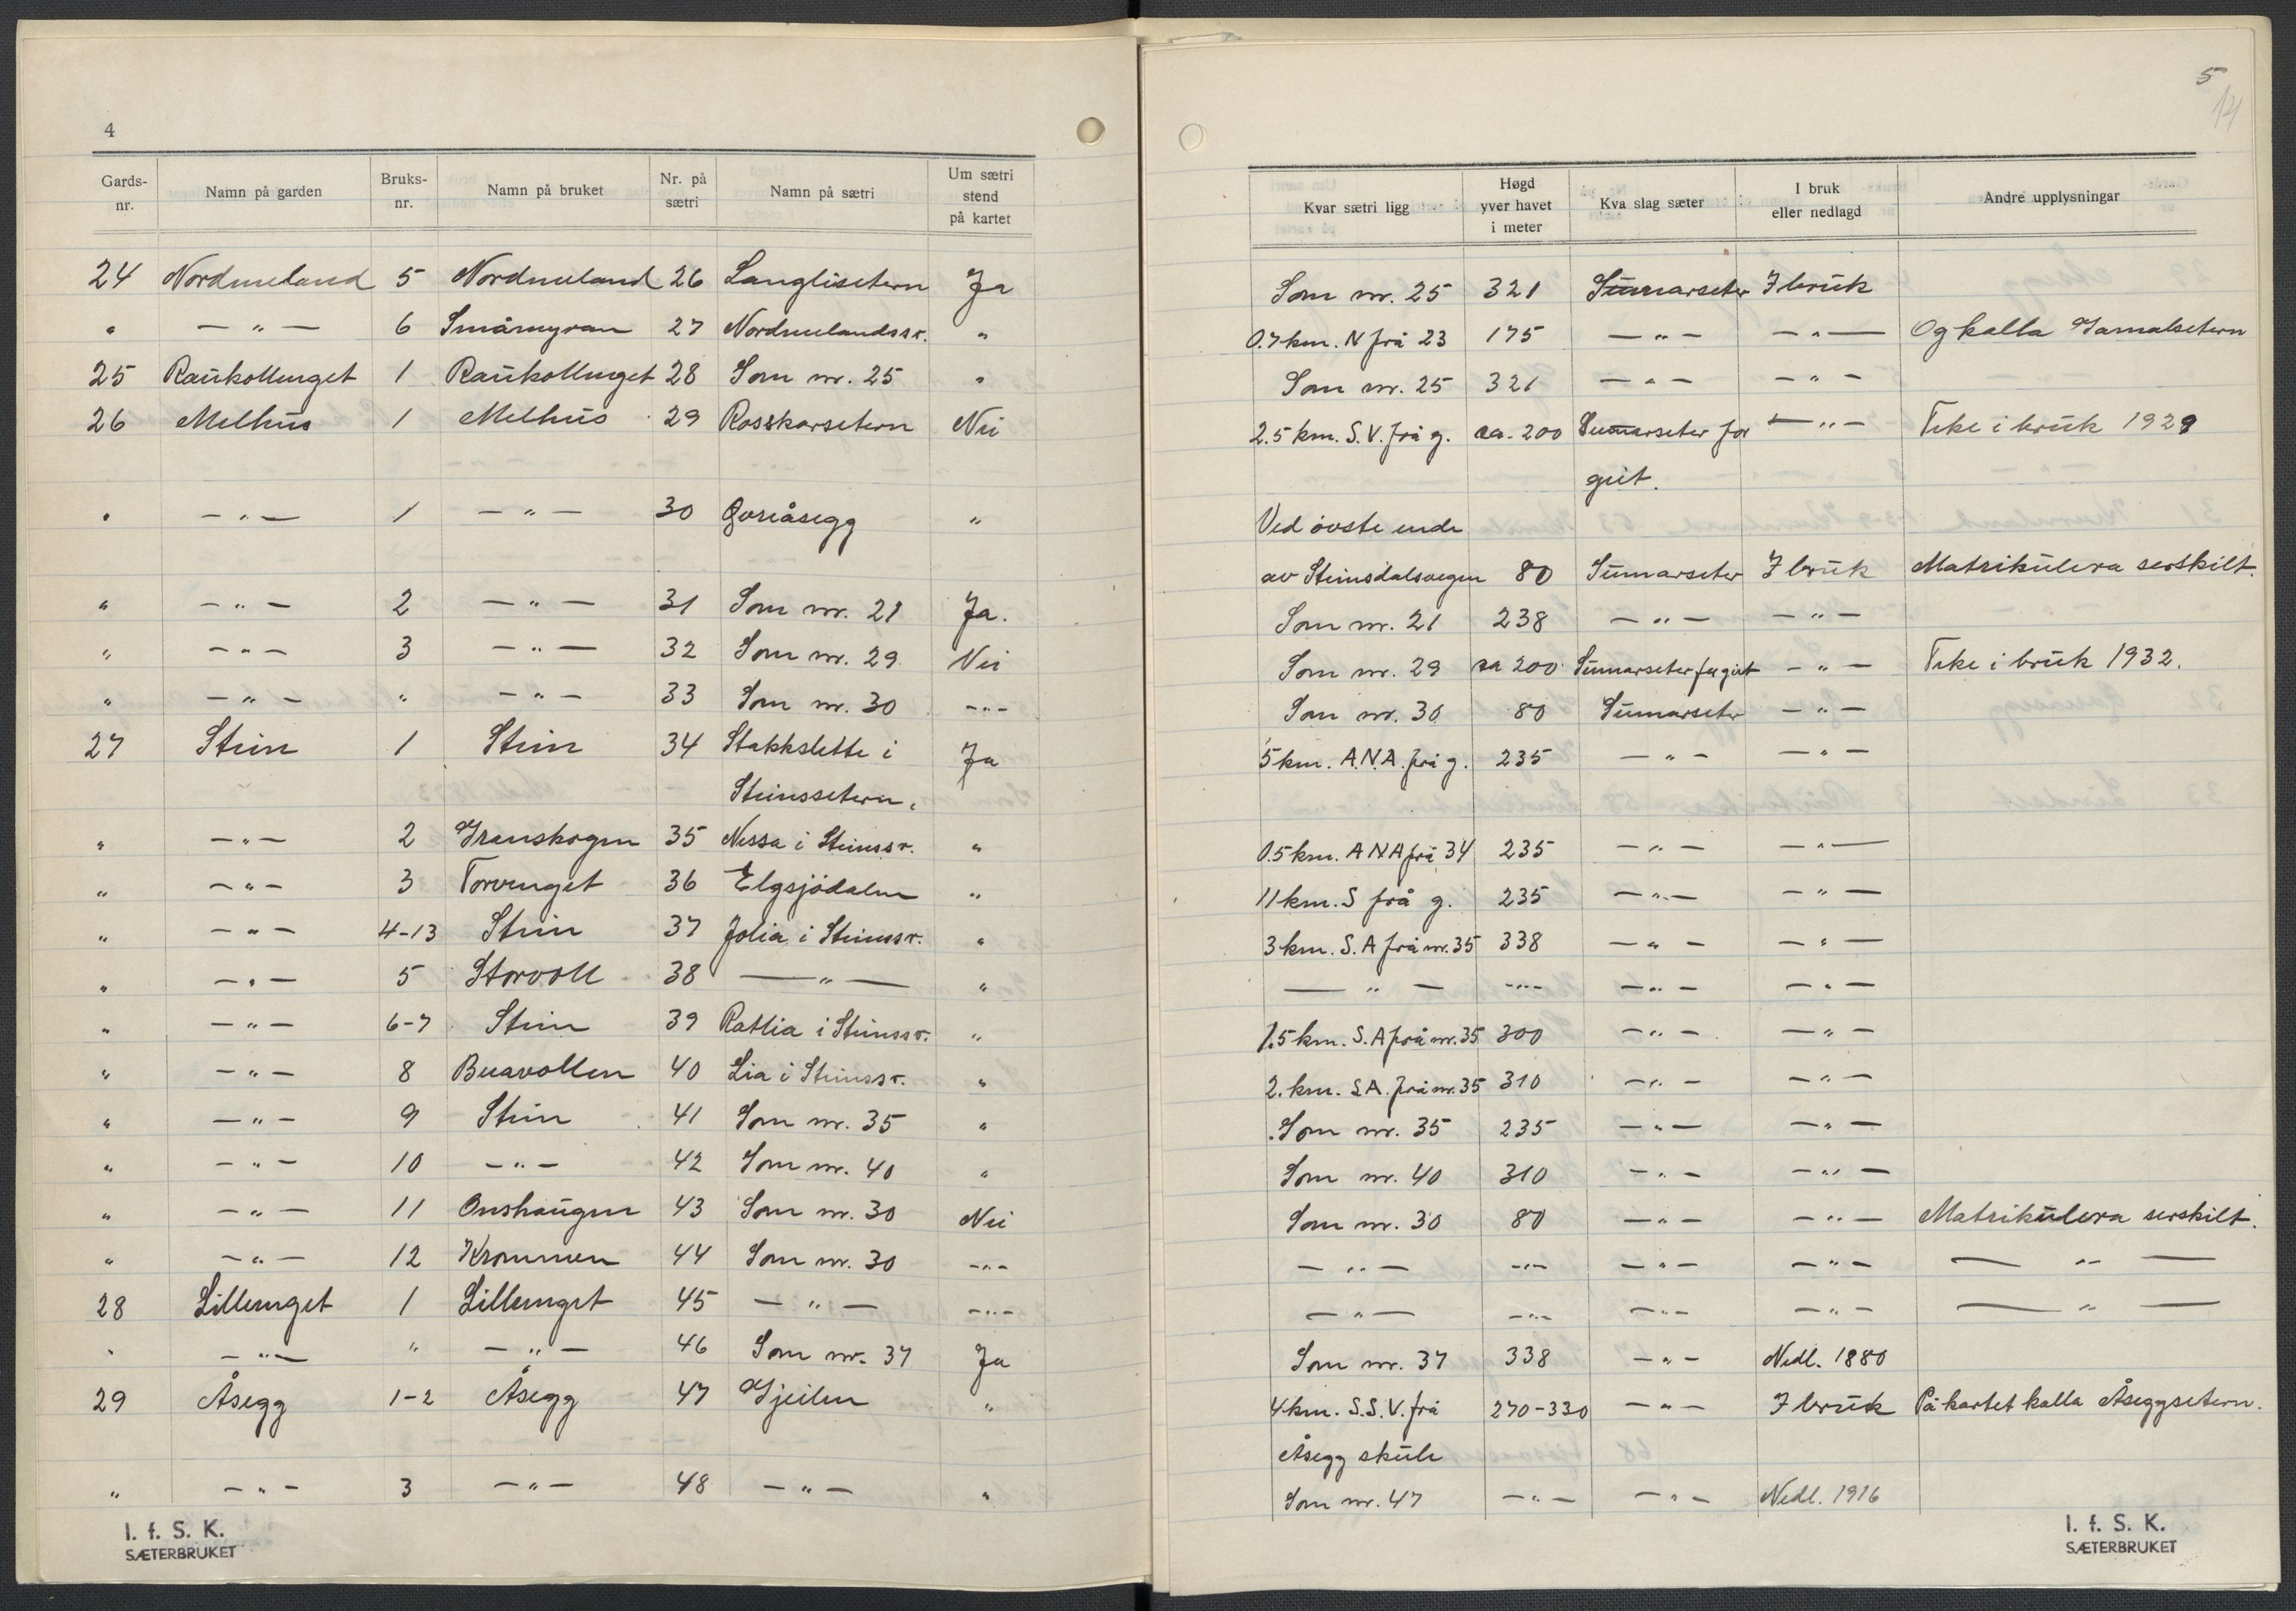 4
Gards-nr. Namn på garden Bruks-nr. Namn på bruket Nr. på sætri Namn på sætri Um sætri stend på kartet
24 Nordmeland 5 Nordmeland 26 Langlisetern Ja
" — " — 6 Småmyran 27 Nordmelandssr. "
25 Raukollenget 1 Raukollenget 28 Som nr. 25 "
26 Melhus 1 Melhus 29 Rosskarsetern Nei
" — " — 1 — " — 30 Goreåsegg "
" — " — 2 — " — 31 Som nr. 21 Ja.
" — " — 3 — " — 32 Som nr. 29 Nei
" — " — " — " — 33 Som nr. 30 — " —
27 Stein 1 Stein 34 Stakkslette i Ja
Steinssetern.
" — " — 2 Granskogen 35 Nessa i Steinssr. "
" — " — 3 Torvenget 36 Elgsjödalen "
" — " — 4-13 Stein 37 Jolia i Steinssr. "
" — " — 5 Storvoll 38 — " — "
" — " — 6-7 Stein 39 Ratlia i Steinssr. "
" — " — 8 Buavollen 40 Lia i Steinssr. "
" — " — 9 Stein 41 Som nr. 35 "
" — " — 10 — " — 42 Som nr. 40 "
" — " — 11 Onshaugen 43 Som nr. 30 Nei
" — " — 12 Krommen 44 Som nr. 30 — " —
28 Lillenget 1 Lillenget 45 — " — — " —
" — " — " — " — 46 Som nr. 37 Ja
29 Åsegg 1-2 Åsegg 47 Gjeilen "
" — " — 3 — " — 48 — " — "
I. f. S. K.
SÆTERBRUKET
5
14
Kvar sætri ligg Høgd yver havet i meter Kva slag sæter I bruk eller nedlagd Andre upplysningar
Som nr. 25 321 Sumarseter I bruk
0.7 km. N frå 23 175 — " — — " — Og kalla Gamalsetern
Som nr. 25 321 — " — — " —
2.5 km. S.V. frå g. ca. 200 Sumarseter for — " — Teke i bruk 1929
geit.
Ved övste ende
av Steinsdalsvegen 80 Sumarseter I bruk Matrikulera serskilt.
Som nr. 21 238 — " — — " —
Som nr. 29 ca 200 Sumarseter for geit — " — Teke i bruk 1932.
Som nr. 30 80 Sumarseter — " —
5 km. A.N.A. frå g. 235 — " — — " —
0.5 km. A N A frå 34 235 — " — — " —
11 km. S frå g. 235 — " — — " —
3 km. S. A frå nr. 35 338 — " — — " —
— " — — " — — " — — " —
1.5 km. S. A frå nr. 35 300 — " — — " —
2. km. S A. frå nr. 35 310 — " — — " —
Som nr. 35 235 — " — — " —
Som nr. 40 310 — " — — " —
Som nr. 30 80 — " — — " — Matrikulera serskilt.
— " — — " — — " — — " — — " —
— " — — " — — " — — " — — " —
Som nr. 37 338 — " — Nedl. 1880
4 km. S.S.V. frå 270-330 — " — I bruk På kartet kalla Åseggsetern.
Åsegg skule
Som nr. 47 — " — — " — Nedl. 1916
I. f. S. K.
SÆTERBRUKET